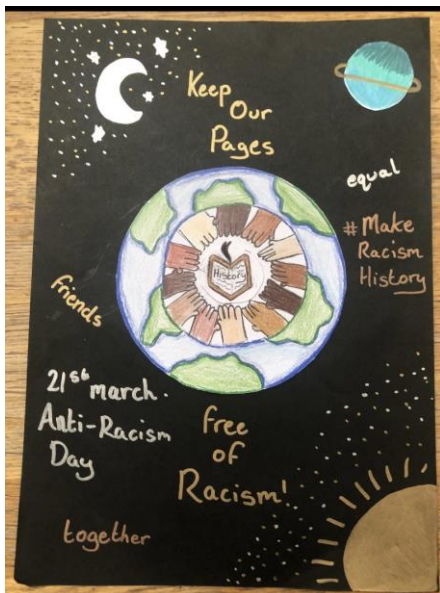 Keep
Our
Pages
equal
# Make
Racism
History
History
friends
21st march.
Anti-Racism
Day
free
of
Racism!
together